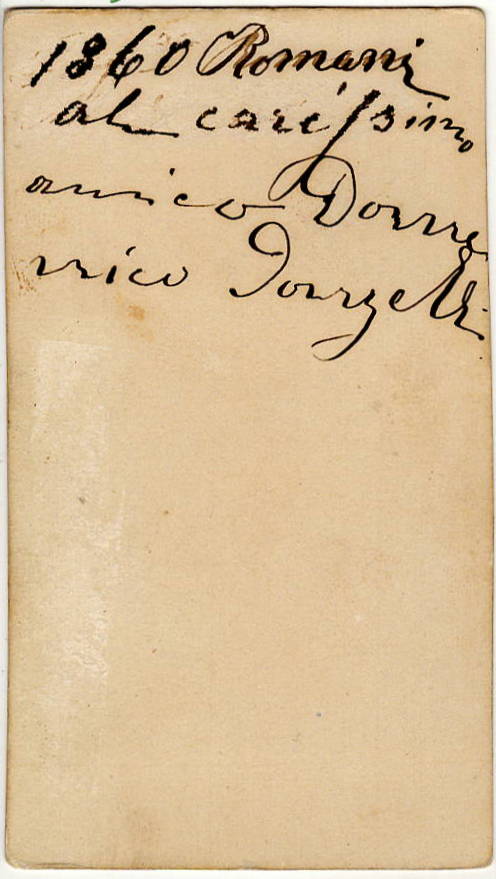 1860 Romani
al carissimo
amico Dome
nico